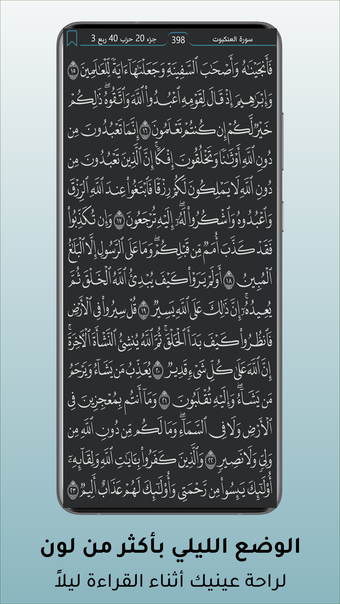 سورة العنكبوت 398 جزء 20 حزب 40 ربع 3
فَأَنجَيْنَٰهُ وَأَصْحَٰبَ ٱلسَّفِينَةِ وَجَعَلْنَٰهَآ ءَايَةً لِّلْعَٰلَمِينَ ١٥
وَإِبْرَٰهِيمَ إِذْ قَالَ لِقَوْمِهِ ٱعْبُدُوا۟ ٱللَّهَ وَٱتَّقُوهُ ۖ ذَٰلِكُمْ
خَيْرٌ لَّكُمْ إِن كُنتُمْ تَعْلَمُونَ ١٦ إِنَّمَا تَعْبُدُونَ مِن
دُونِ ٱللَّهِ أَوْثَٰنًا وَتَخْلُقُونَ إِفْكًا ۚ إِنَّ ٱلَّذِينَ تَعْبُدُونَ مِن
دُونِ ٱللَّهِ لَا يَمْلِكُونَ لَكُمْ رِزْقًا فَٱبْتَغُوا۟ عِندَ ٱللَّهِ ٱلرِّزْقَ
وَٱعْبُدُوهُ وَٱشْكُرُوا۟ لَهُۥٓ ۖ إِلَيْهِ تُرْجَعُونَ ١٧ وَإِن تُكَذِّبُوا۟
فَقَدْ كَذَّبَ أُمَمٌ مِّن قَبْلِكُمْ ۖ وَمَا عَلَى ٱلرَّسُولِ إِلَّا ٱلْبَلَٰغُ
ٱلْمُبِينُ ١٨ أَوَلَمْ يَرَوْا۟ كَيْفَ يُبْدِئُ ٱللَّهُ ٱلْخَلْقَ ثُمَّ
يُعِيدُهُۥٓ ۚ إِنَّ ذَٰلِكَ عَلَى ٱللَّهِ يَسِيرٌ ١٩ قُلْ سِيرُوا۟ فِى ٱلْأَرْضِ
فَٱنظُرُوا۟ كَيْفَ بَدَأَ ٱلْخَلْقَ ۚ ثُمَّ ٱللَّهُ يُنشِئُ ٱلنَّشْأَةَ ٱلْءَاخِرَةَ ۚ
إِنَّ ٱللَّهَ عَلَىٰ كُلِّ شَىْءٍ قَدِيرٌ ٢٠ يُعَذِّبُ مَن يَشَآءُ وَيَرْحَمُ
مَن يَشَآءُ ۖ وَإِلَيْهِ تُقْلَبُونَ ٢١ وَمَآ أَنتُم بِمُعْجِزِينَ فِى
ٱلْأَرْضِ وَلَا فِى ٱلسَّمَآءِ ۖ وَمَا لَكُم مِّن دُونِ ٱللَّهِ مِن
وَلِىٍّ وَلَا نَصِيرٍ ٢٢ وَٱلَّذِينَ كَفَرُوا۟ بِـَٔايَٰتِ ٱللَّهِ وَلِقَآئِهِۦٓ
أُو۟لَٰٓئِكَ يَئِسُوا۟ مِن رَّحْمَتِى وَأُو۟لَٰٓئِكَ لَهُمْ عَذَابٌ أَلِيمٌ ٢٣
الوضع الليلي بأكثر من لون
لراحة عينيك أثناء القراءة ليلاً